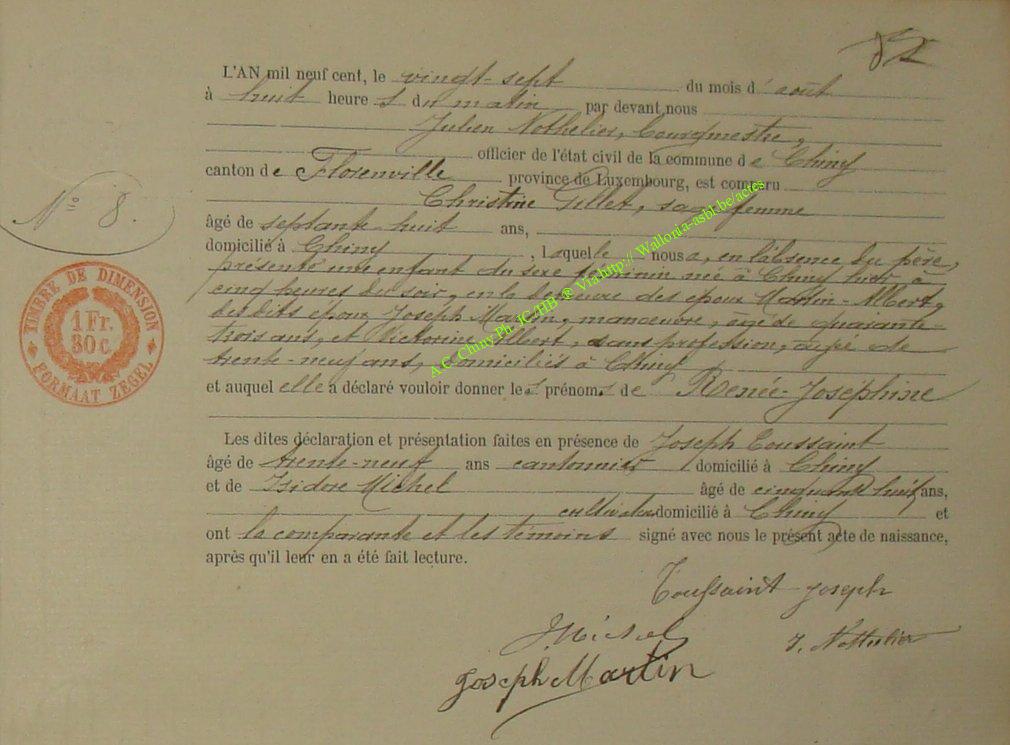 82
L'AN mil neuf cent, le vingt-sept du mois d'août
à huit heures du matin par devant nous
Julien Nothelier, bourgmestre,
officier de l'état civil de la commune de Chiny
canton de Florenville province de Luxembourg, est comparu
Christine Gillet, sage femme
âgé de septante-huit ans,
domicilié à Chiny, laquelle nous a, en l'absence du père,
présenté une enfant du sexe féminin née à Chiny hier à
cinq heures du soir, en la demeure des époux Martin-Albert,
des dits époux Joseph Martin, manœuvre, âgé de quarante-
trois ans, et Victorine Albert, sans profession, âgée de
trente-neuf ans, domiciliés à Chiny
et auquel elle a déclaré vouloir donner les prénoms de Renée-Joséphine
Les dites déclaration et présentation faites en présence de Joseph Toussaint
âgé de trente-neuf ans cantonnier domicilié à Chiny
et de Isidore Michel âgé de cinquante huit ans,
cultivateur domicilié à Chiny et
ont la comparante et les témoins signé avec nous le présent acte de naissance,
après qu'il leur en a été fait lecture.
Toussaint Joseph
J. Michel
J. Nothelier
Joseph Martin
N° 8.
TIMBRE DE DIMENSION
1 Fr.
30 c.
FORMAAT ZEGEL
A.C. Chiny Ph. JC/HB @ Via http:// Wallonia-asbl.be/actes